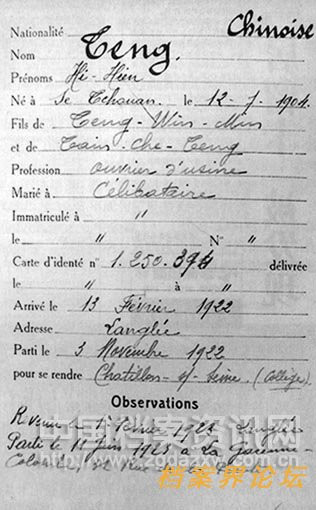 Nationalité Chinoise
Nom Teng.
Prénoms Hi-Hien
Né à Se Tchouan. le 12-7-1904.
Fils de Teng-Win-Min
et de Tain-Che-Teng
Profession ouvrier d'usine
Marié à Célibataire
Immatriculé à "
le " N° "
Carte d'identé n° 1.250.394 délivrée
le " à "
Arrivé le 13 Février 1922
Adresse Langlée
Parti le 3 Novembre 1922
pour se rendre Chatillon-s/-Seine. (Collège)
Observations
Revenu Février
Parti le 11 Juin 1923 à La Garenne-
Colombes, Rue de
中国档案资讯网
www.zgdazxw.com.cn
档案界论坛